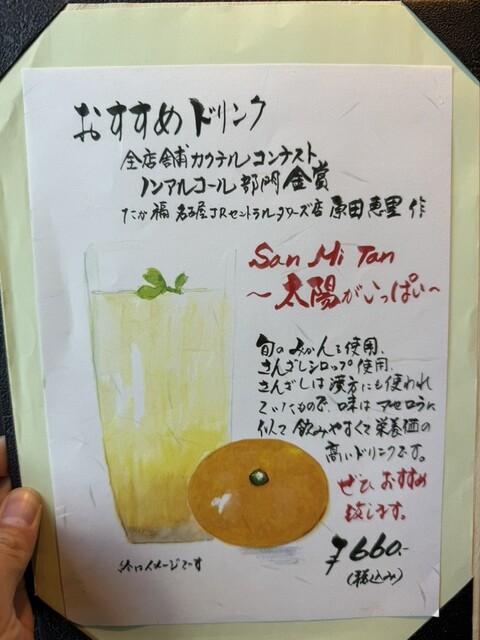 おすすめドリンク
全店舗カクテルコンテスト
ノンアルコール部門金賞
たか福 名古屋JRセントラルタワーズ店 原田恵里 作
San Mi Tan
～太陽がいっぱい～
旬のみかんを使用、
さんざしシロップ使用。
さんざしは漢方にも使われ
ていたもので、味はアセロラに
似て飲みやすくて栄養価の
高いドリンクです。
ぜひおすすめ
致します。
¥660.-
(税込み)
絵はイメージです